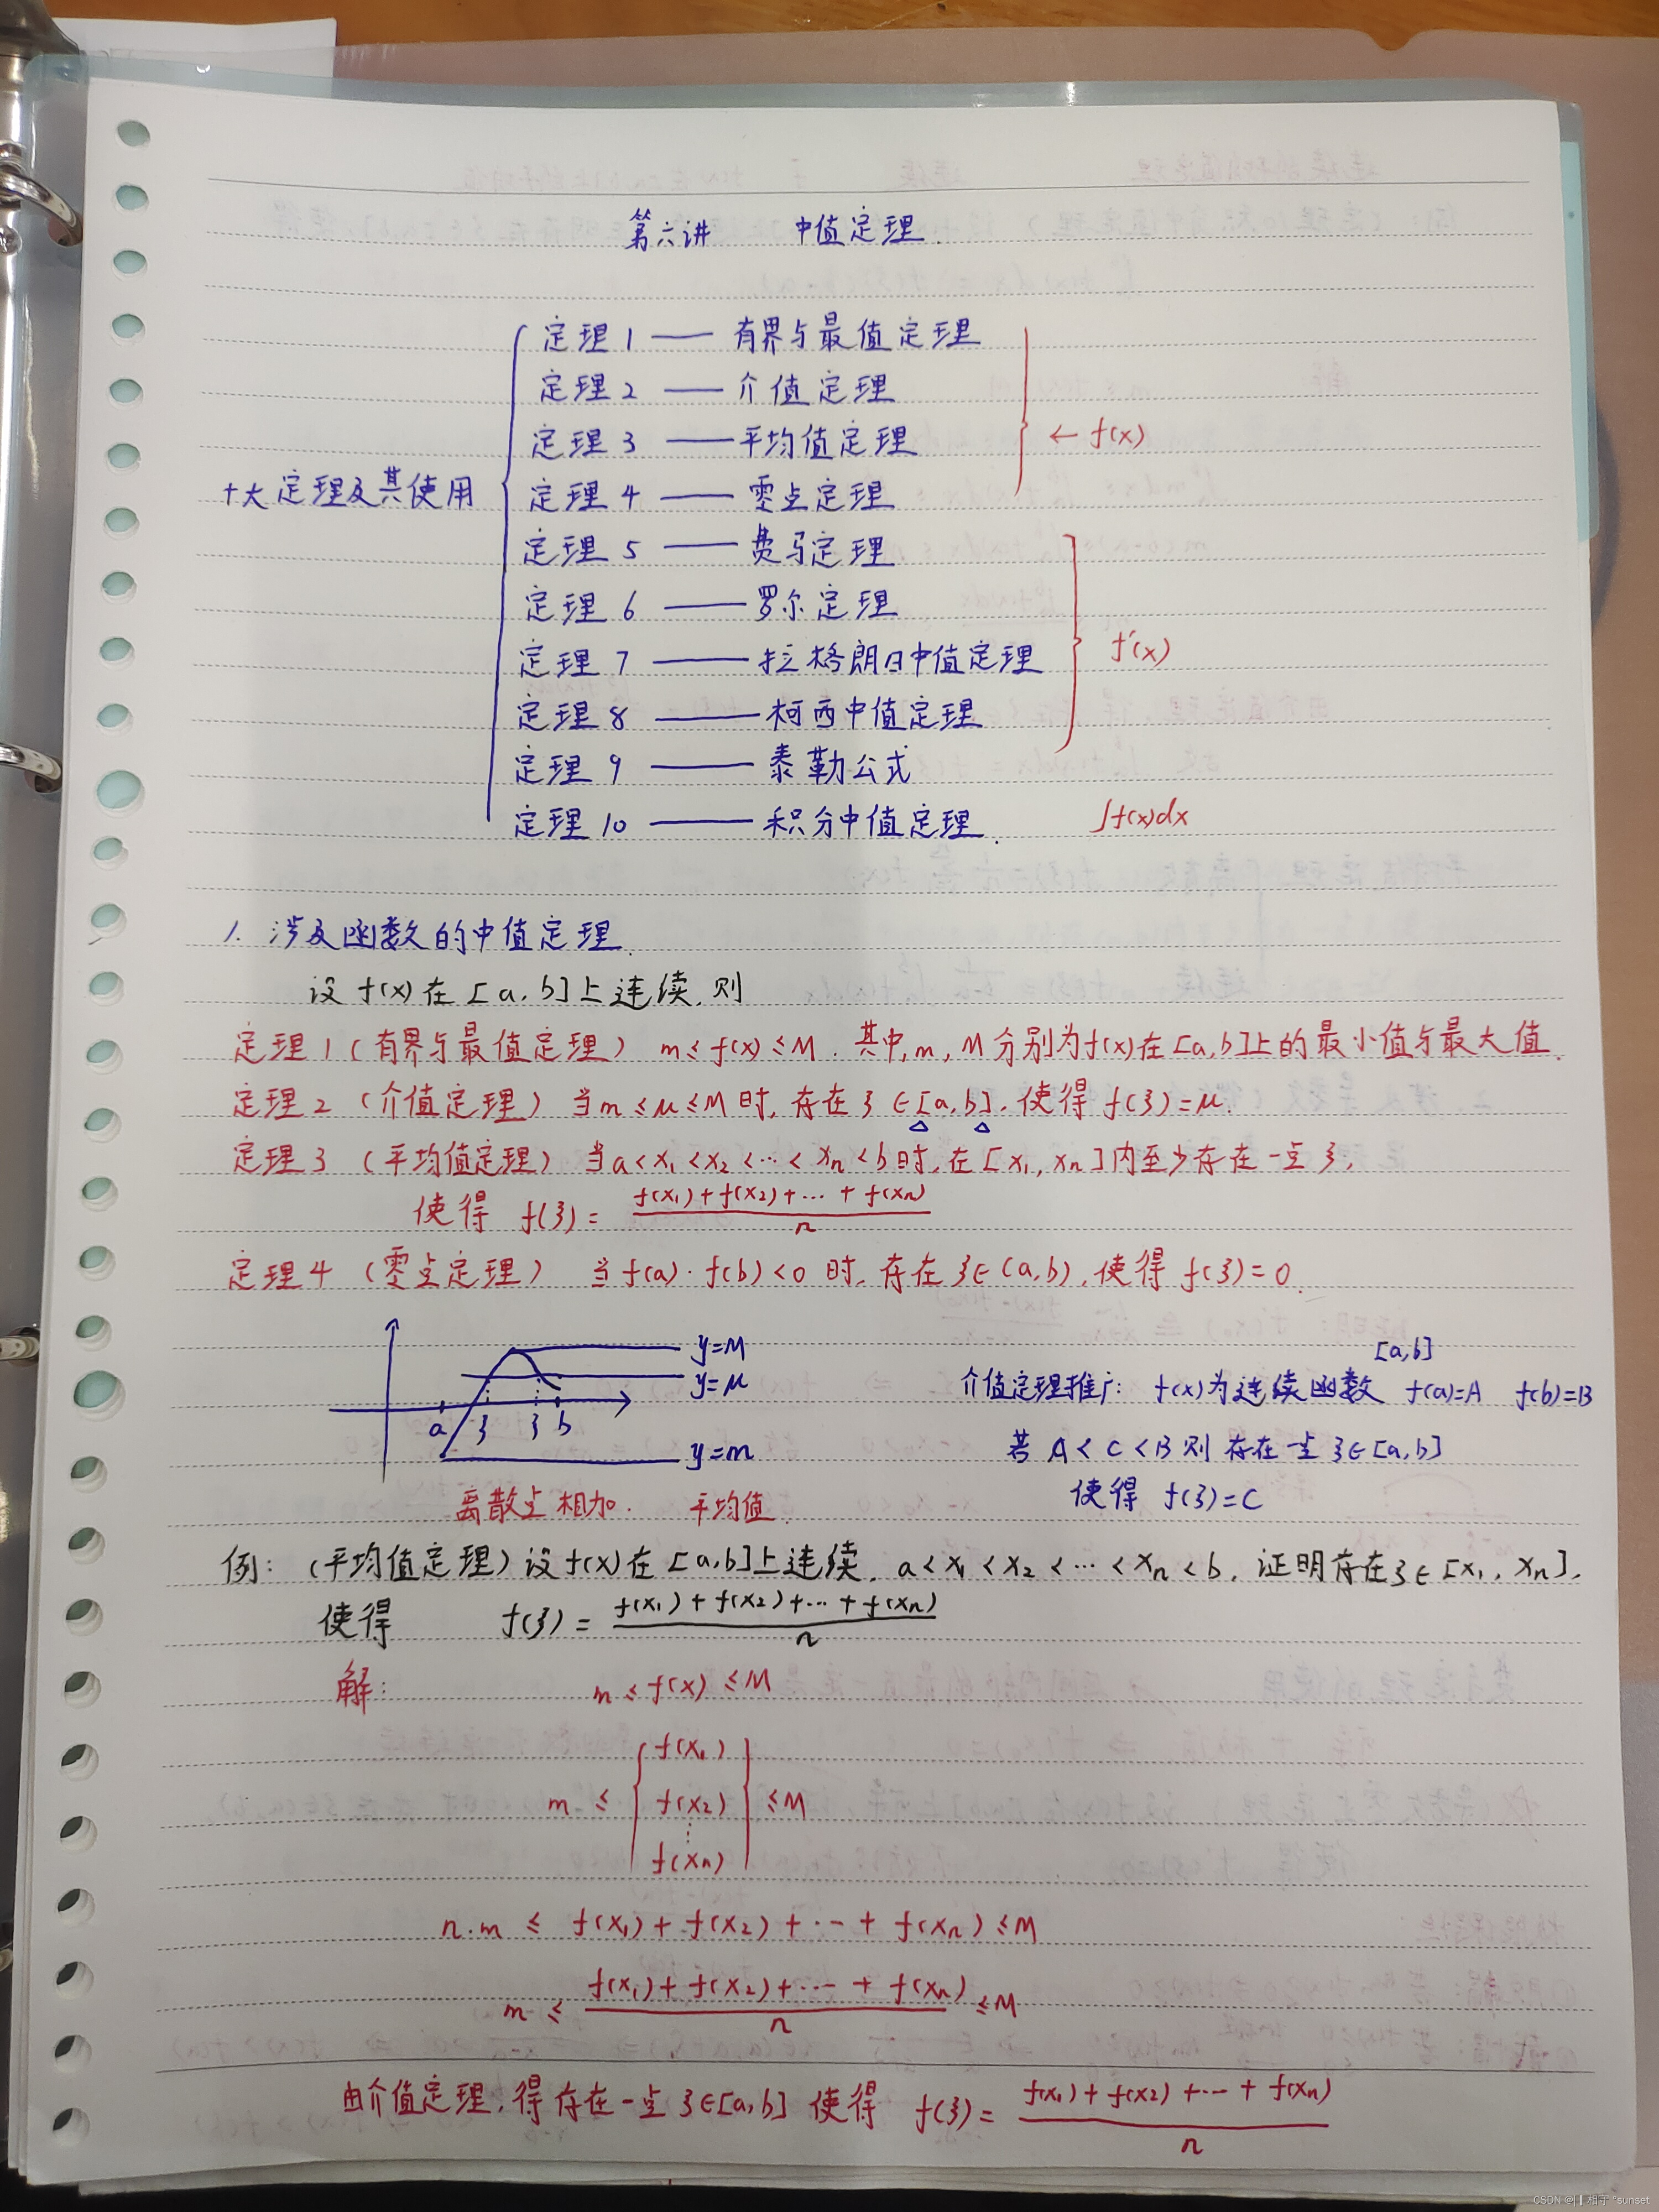 第六讲 中值定理.
定理1 —— 有界与最值定理
定理2 —— 介值定理
定理3 —— 平均值定理 ← f(x)
十大定理及其使用 定理4 —— 零点定理
定理5 —— 费马定理
定理6 —— 罗尔定理
定理7 —— 拉格朗日中值定理 f'(x)
定理8 —— 柯西中值定理
定理9 —— 泰勒公式
定理10 —— 积分中值定理. ∫f(x)dx
1. 涉及函数的中值定理.
设f(x)在[a,b]上连续,则
定理1(有界与最值定理) m≤f(x)≤M. 其中,m,M分别为f(x)在[a,b]上的最小值与最大值.
定理2(介值定理)当m≤μ≤M时,存在ξ∈[a,b],使得f(ξ)=μ.
定理3(平均值定理)当a<x₁<x₂<…<xₙ<b时,在[x₁,xₙ]内至少存在一点ξ,
使得 f(ξ)= (f(x₁)+f(x₂)+…+f(xₙ))/n
定理4(零点定理) 当f(a)·f(b)<0时,存在ξ∈(a,b),使得f(ξ)=0.
y=M
y=μ
a ξ ξ b
y=m
[a,b]
介值定理推广: f(x)为连续函数 f(a)=A f(b)=B
若A<C<B则存在一点ξ∈[a,b]
使得 f(ξ)=C
离散点相加. 平均值.
例:(平均值定理)设f(x)在[a,b]上连续,a<x₁<x₂<…<xₙ<b,证明存在ξ∈[x₁,xₙ],
使得 f(ξ)= (f(x₁)+f(x₂)+…+f(xₙ))/n
解: m≤f(x)≤M
f(x₁)
m ≤ f(x₂) ≤M
⋮
f(xₙ)
n·m ≤ f(x₁)+f(x₂)+…+f(xₙ)≤M
m ≤ (f(x₁)+f(x₂)+…+f(xₙ))/n ≤M
由介值定理,得存在一点ξ∈[a,b] 使得 f(ξ)= (f(x₁)+f(x₂)+…+f(xₙ))/n